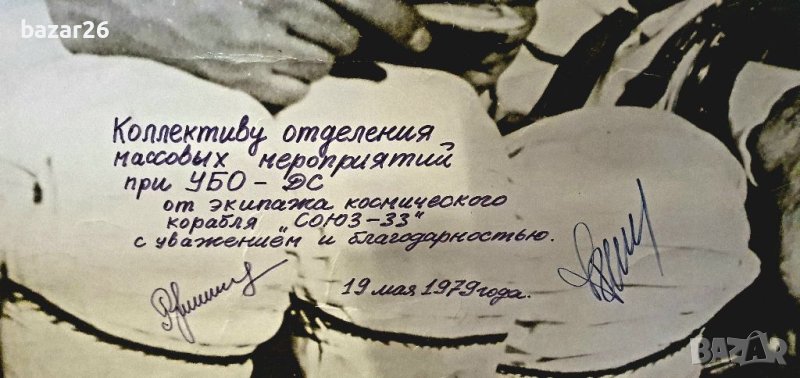 bazar26
Коллективу отделения
массовых мероприятий
при УБО - ДС
от экипажа космического
корабля "СОЮЗ-33"
с уважением и благодарностью.
19 мая 1979 года.
BAZAR